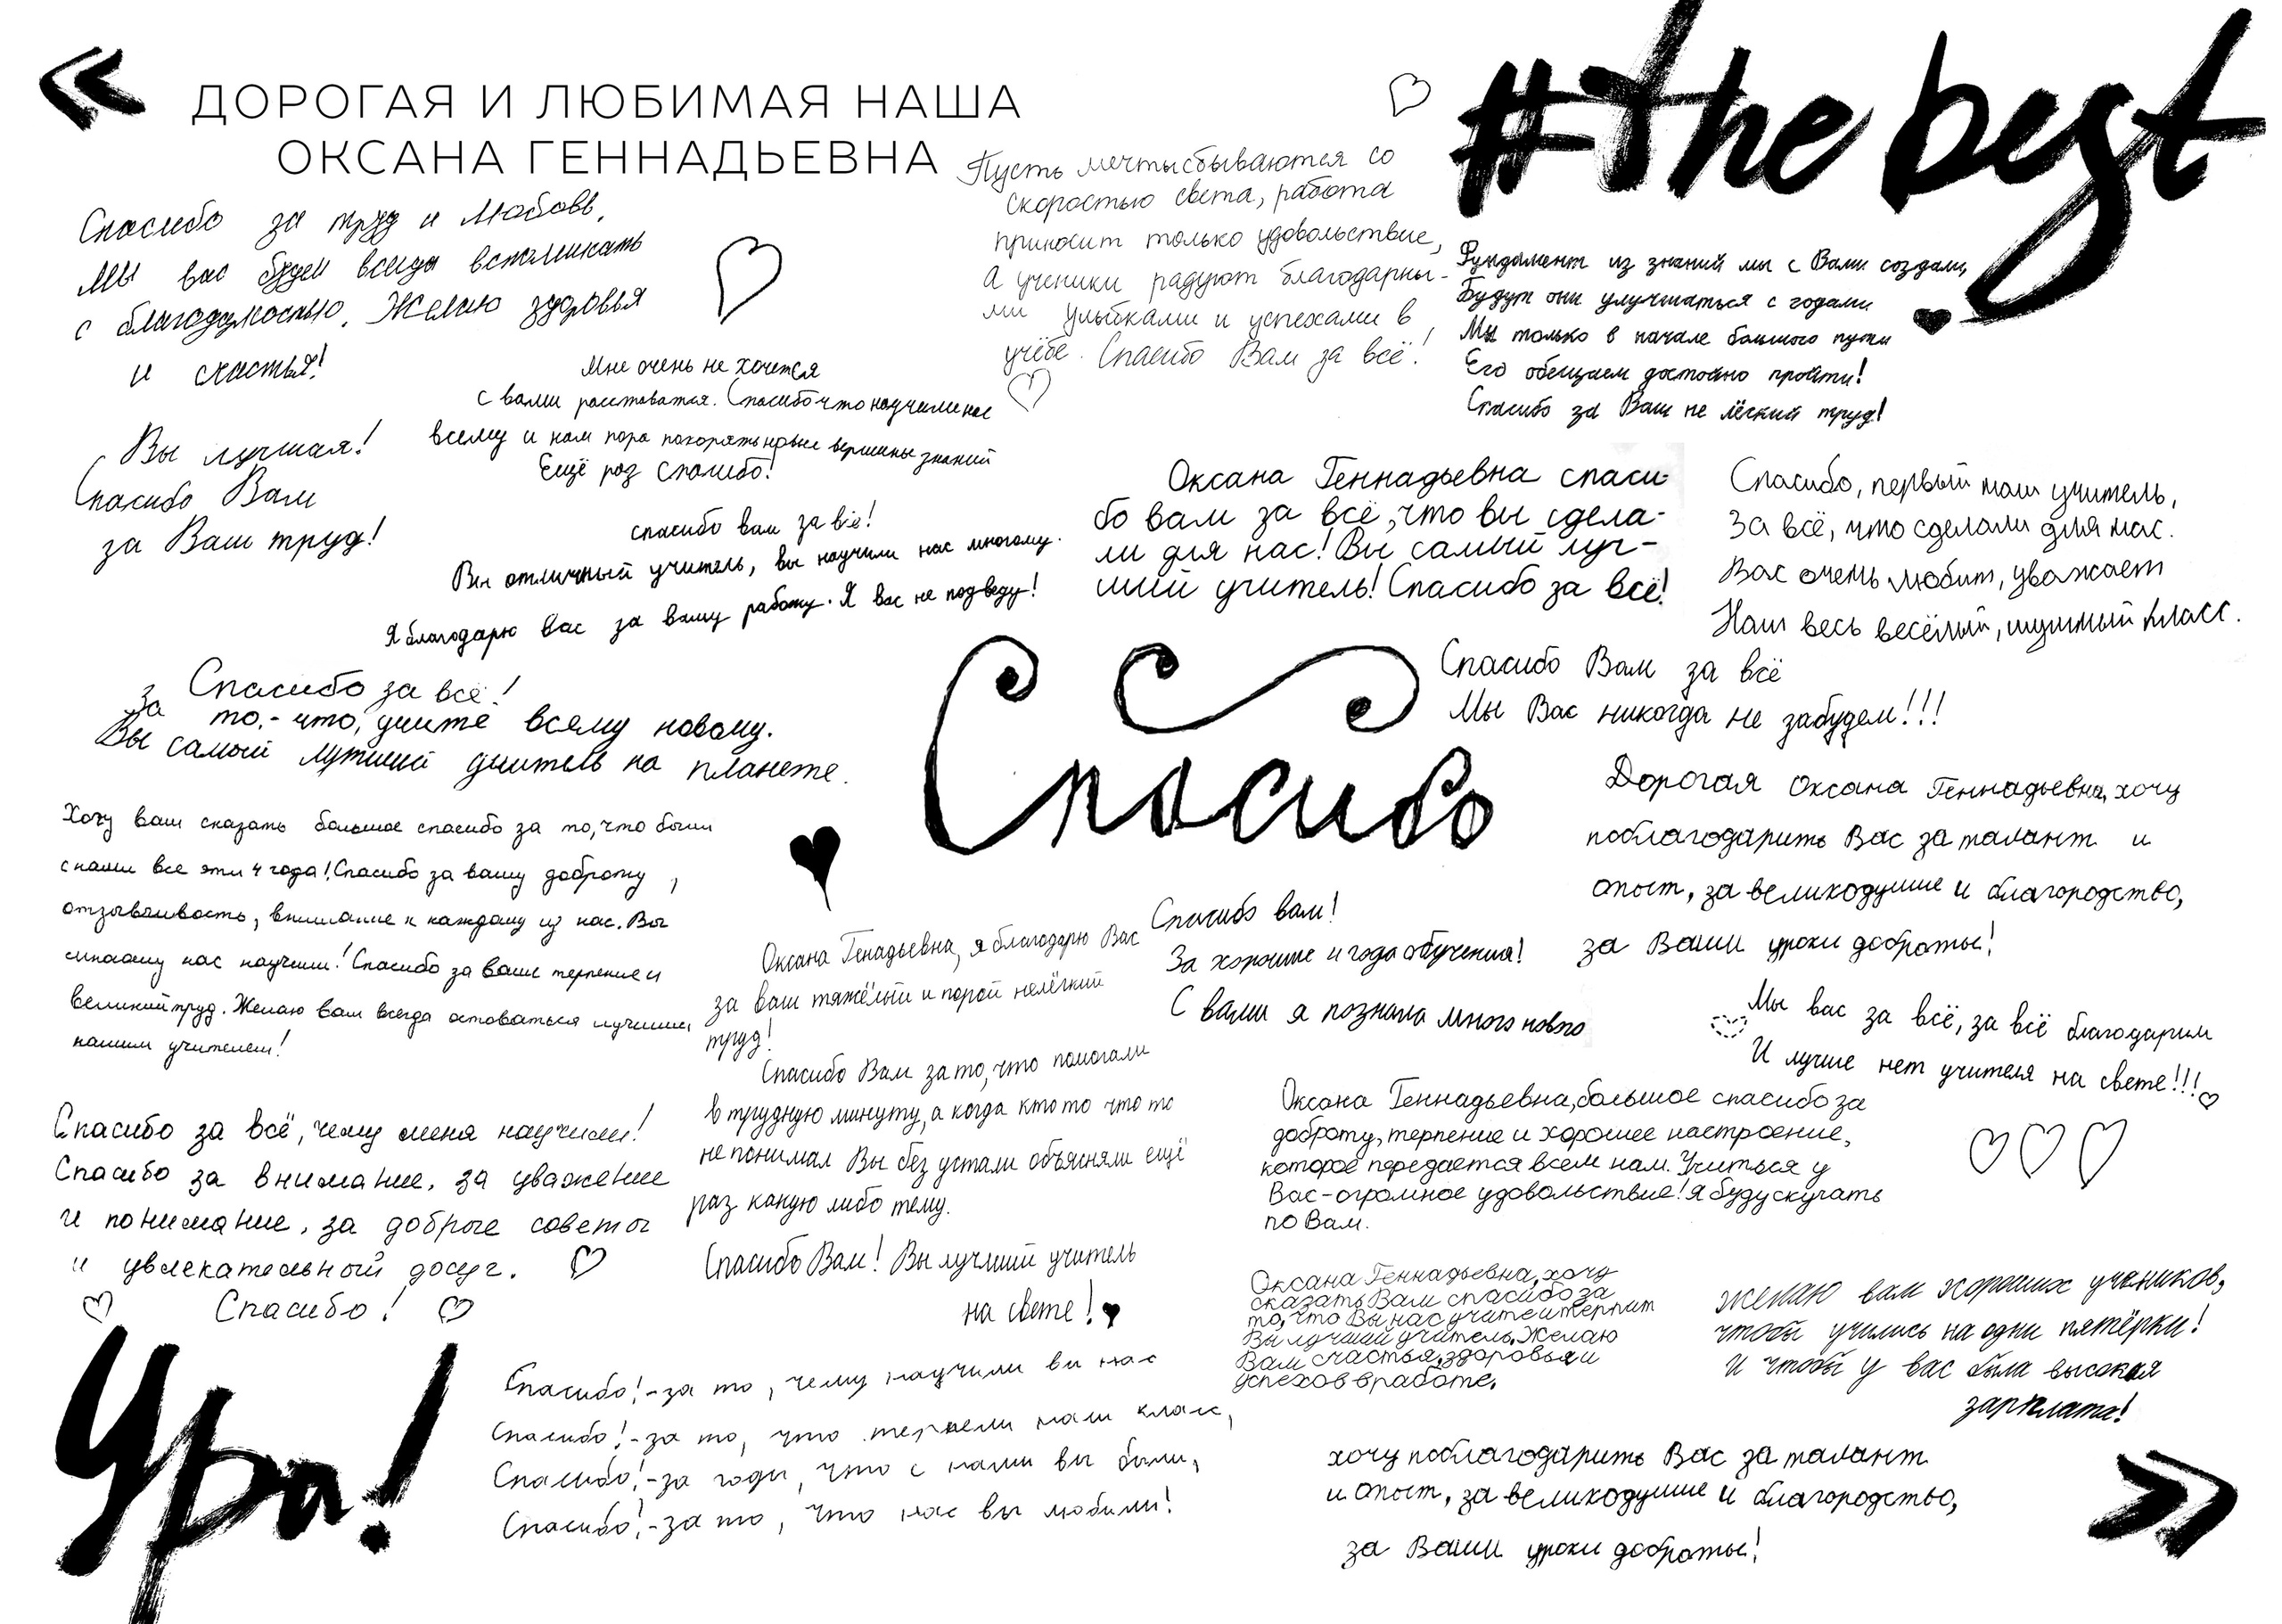 «
ДОРОГАЯ И ЛЮБИМАЯ НАША
ОКСАНА ГЕННАДЬЕВНА
#the best
Спасибо за труд и Любовь,
Мы вас будем всегда вспоминать
с благодарностью. Желаю здоровья
и счастья!
Пусть мечты сбываются со
скоростью света, работа
приносит только удовольствие,
А ученики радуют благодарны-
ми улыбками и успехами в
учёбе. Спасибо Вам за всё!
Фундамент из знаний мы с Вами создали,
Будут они улучшаться с годами
Мы только в начале большого пути
Его обещаем достойно пройти!
Спасибо за Ваш не лёгкий труд!
Мне очень не хочется
с вами расставатся. Спасибо что научили нас
всему и нам пора покорять новые вершины знаний
Ещё раз спасибо!
Вы лучшая!
Спасибо Вам
за Ваш труд!
спасибо вам за всё!
Вы отличный учитель, вы научили нас многому.
Я благодарю вас за вашу работу. Я вас не подведу!
Оксана Геннадьевна спаси-
бо вам за всё, что вы сдела-
ли для нас! Вы самый луч-
ший учитель! Спасибо за всё!
Спасибо, первый наш учитель,
За всё, что сделали для нас.
Вас очень любит, уважает
Наш весь весёлый, шумный класс.
Спасибо за всё!
за то,- что, учите всяму новому.
Вы самый лутший учитель на планете.
Спасибо
Спасибо Вам за всё
Мы Вас никогда не забудем!!!
Дорогая Оксана Геннадьевна, хочу
поблагодарить Вас за талант и
опыт, за великодушие и благородство,
за Ваши уроки доброты!
Хочу вам сказать большое спасибо за то, что были
с нами все эти 4 года! Спасибо за вашу доброту,
отзывчивость, внимание к каждому из нас. Вы
многому нас научили! Спасибо за ваше терпение и
великий труд. Желаю вам всегда оставаться лучшим
нашим учителем!
Оксана Генадьевна, я благодарю Вас
за ваш тяжёлый и порой нелёгкий
труд!
Спасибо Вам за то, что помогали
в трудную минуту, а когда кто то что то
не понимал Вы без устали объясняли ещё
раз какую либо тему.
Спасибо Вам! Вы лучший учитель
на свете!
Спасибо вам!
За хорошие 4 года обучения!
С вами я познала много нового
Мы вас за всё, за всё благодарим
И лучше нет учителя на свете!!!
Оксана Геннадьевна, большое спасибо за
доброту, терпение и хорошее настроение,
которое передается всем нам. Учиться у
Вас - огромное удовольствие! Я буду скучать
по Вам.
Спасибо за всё, чему меня научили!
Спасибо за внимание, за уважение
и понимание, за добрые советы
и увлекательный досуг.
Спасибо!
Оксана Геннадьевна, хочу
сказать Вам спасибо за
то, что Вы нас учите и терпит
Вы лучший учитель. Желаю
Вам счастья, здоровья и
успехов в работе.
Желаю вам хороших учеников,
чтобы учились на одни пятёрки!
И чтобы у вас была высокая
зарплата!
Ура!
Спасибо!-за то, чему научили вы нас
Спасибо!-за то, что терпели наш класс,
Спасибо!-за годы, что с нами вы были,
Спасибо!-за то, что нас вы любили!
хочу поблагодарить Вас за талант
и опыт, за великодушие и благородство,
за Ваши уроки доброты!
»